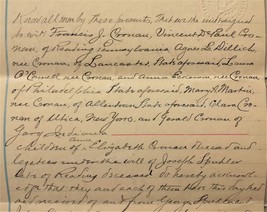 Know all men by these presents, That we the undersigned
to wit Francis J. Cronan, Vincent de Paul Cro-
nan, of Reading Pennsylvania Agnes L. Dillich
nee Cronan, of Lancaster, State aforesaid, Laura
O'Connell nee Cronan, and Anna nee Cronan,
of Philadelphia State aforesaid, Mary S. Martin,
nee Cronan, of Allentown State aforesaid, Clara Cro-
nan of Utica, New York, and Gerald Cronan, of
Gary Indiana
children of Elizabeth Cronan and
legatees under the will of Joseph
late of Reading deceased do hereby acknowl-
edge that they and each of them have this day had
and received of and from George